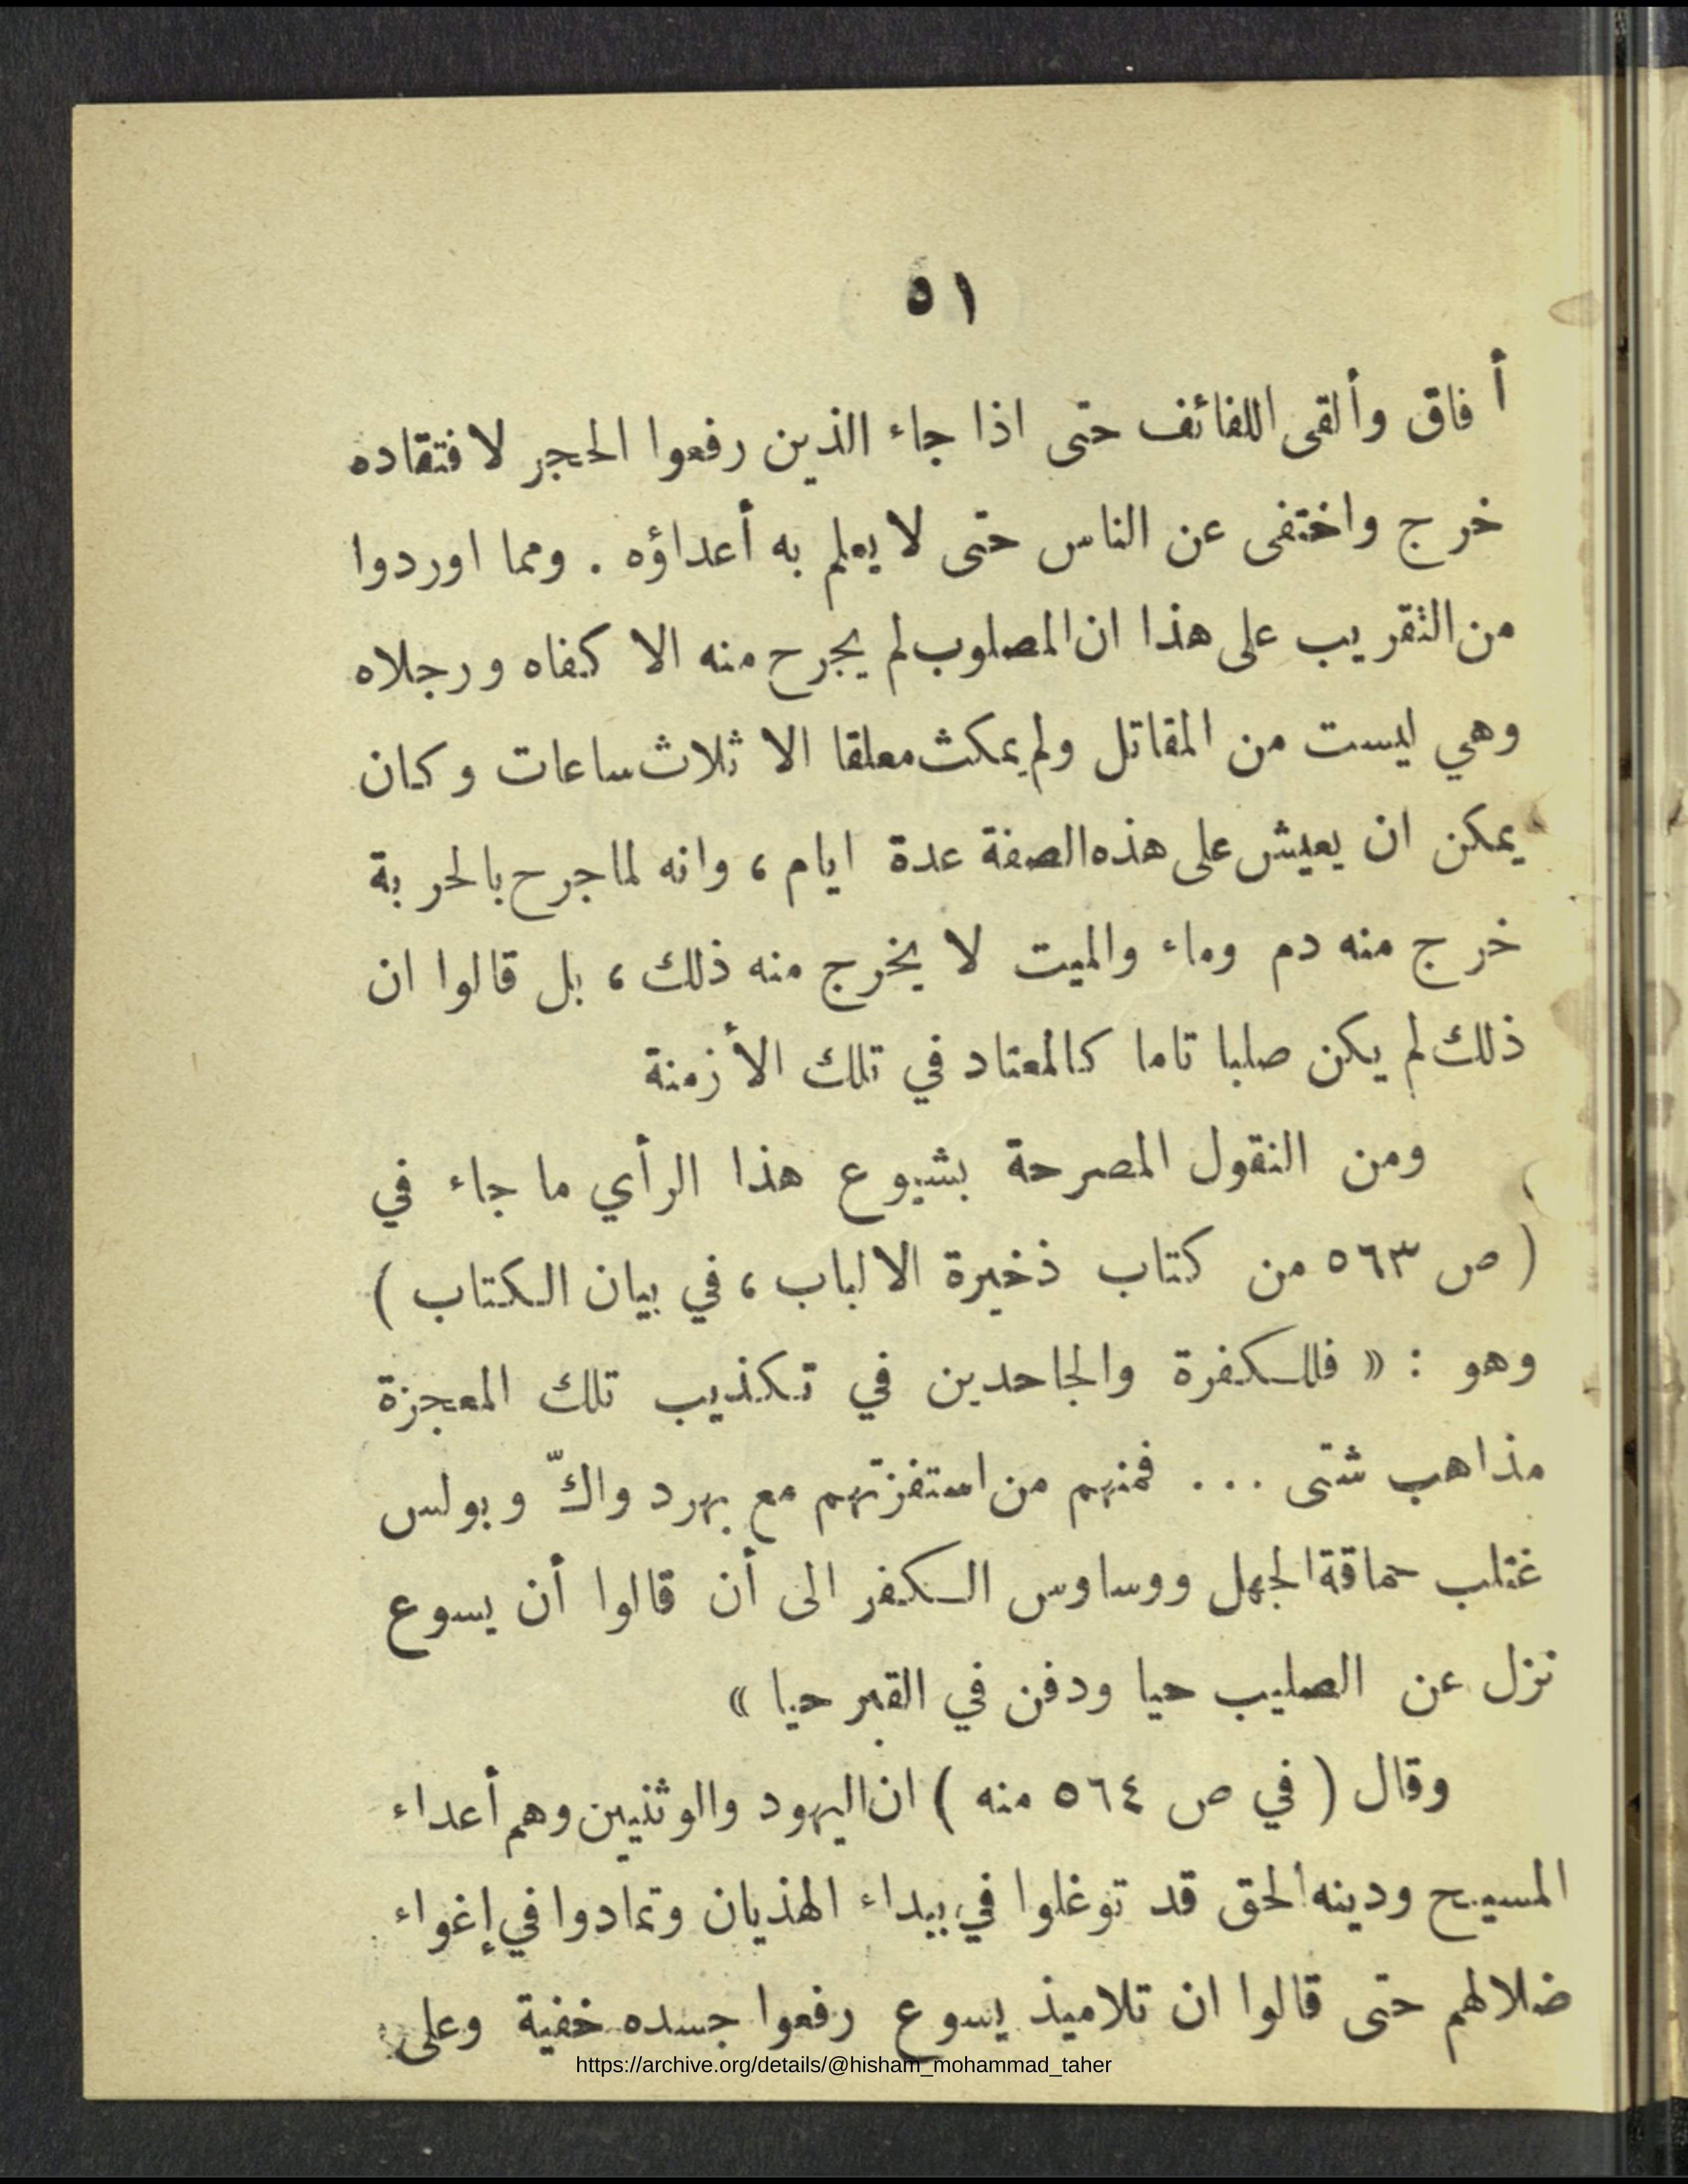 ٥١
أفاق وألقى اللفائف حتى اذا جاء الذين رفعوا الحجر لافتقاده
خرج واختفى عن الناس حتى لا يعلم به أعداؤه . ومما اوردوا
من التقريب على هذا ان المصلوب لم يجرح منه الا كفاه ورجلاه
وهي ليست من المقاتل ولم يمكث معلقا الا ثلاث ساعات وكان
يمكن ان يعيش على هذه الصفة عدة ايام ، وانه لما جرح بالحربة
خرج منه دم وماء والميت لا يخرج منه ذلك ، بل قالوا ان
ذلك لم يكن صلبا تاما كالمعتاد في تلك الأزمنة
ومن النقول المصرحة بشيوع هذا الرأي ما جاء في
( ص ٥٦٣ من كتاب ذخيرة الالباب ، في بيان الكتاب )
وهو : « فللكفرة والجاحدين في تكذيب تلك المعجزة
مذاهب شتى ... فمنهم من استفزتهم مع بهرد واكّ وبولس
غتلب حماقة الجهل ووساوس الكفر الى أن قالوا أن يسوع
نزل عن الصليب حيا ودفن في القبر حيا »
وقال ( في ص ٥٦٤ منه ) ان اليهود والوثنيين وهم أعداء
المسيح ودينه الحق قد توغلوا في بيداء الهذيان وتمادوا في إغواء
ضلالهم حتى قالوا ان تلاميذ يسوع رفعوا جسده خفية وعلى
https://archive.org/details/@hisham_mohammad_taher